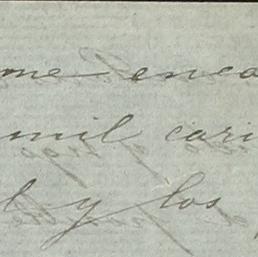 me enca
mil cari
l y los